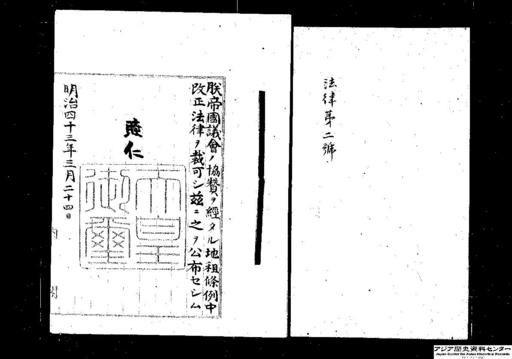 法律第二號
朕帝國議會ノ協贊ヲ經タル地租條例中
改正法律ヲ裁可シ茲ニ之ヲ公布セシム
睦仁
天皇御璽
明治四十三年三月二十四日
内閣
アジア歴史資料センター
Japan Center for Asian Historical Records